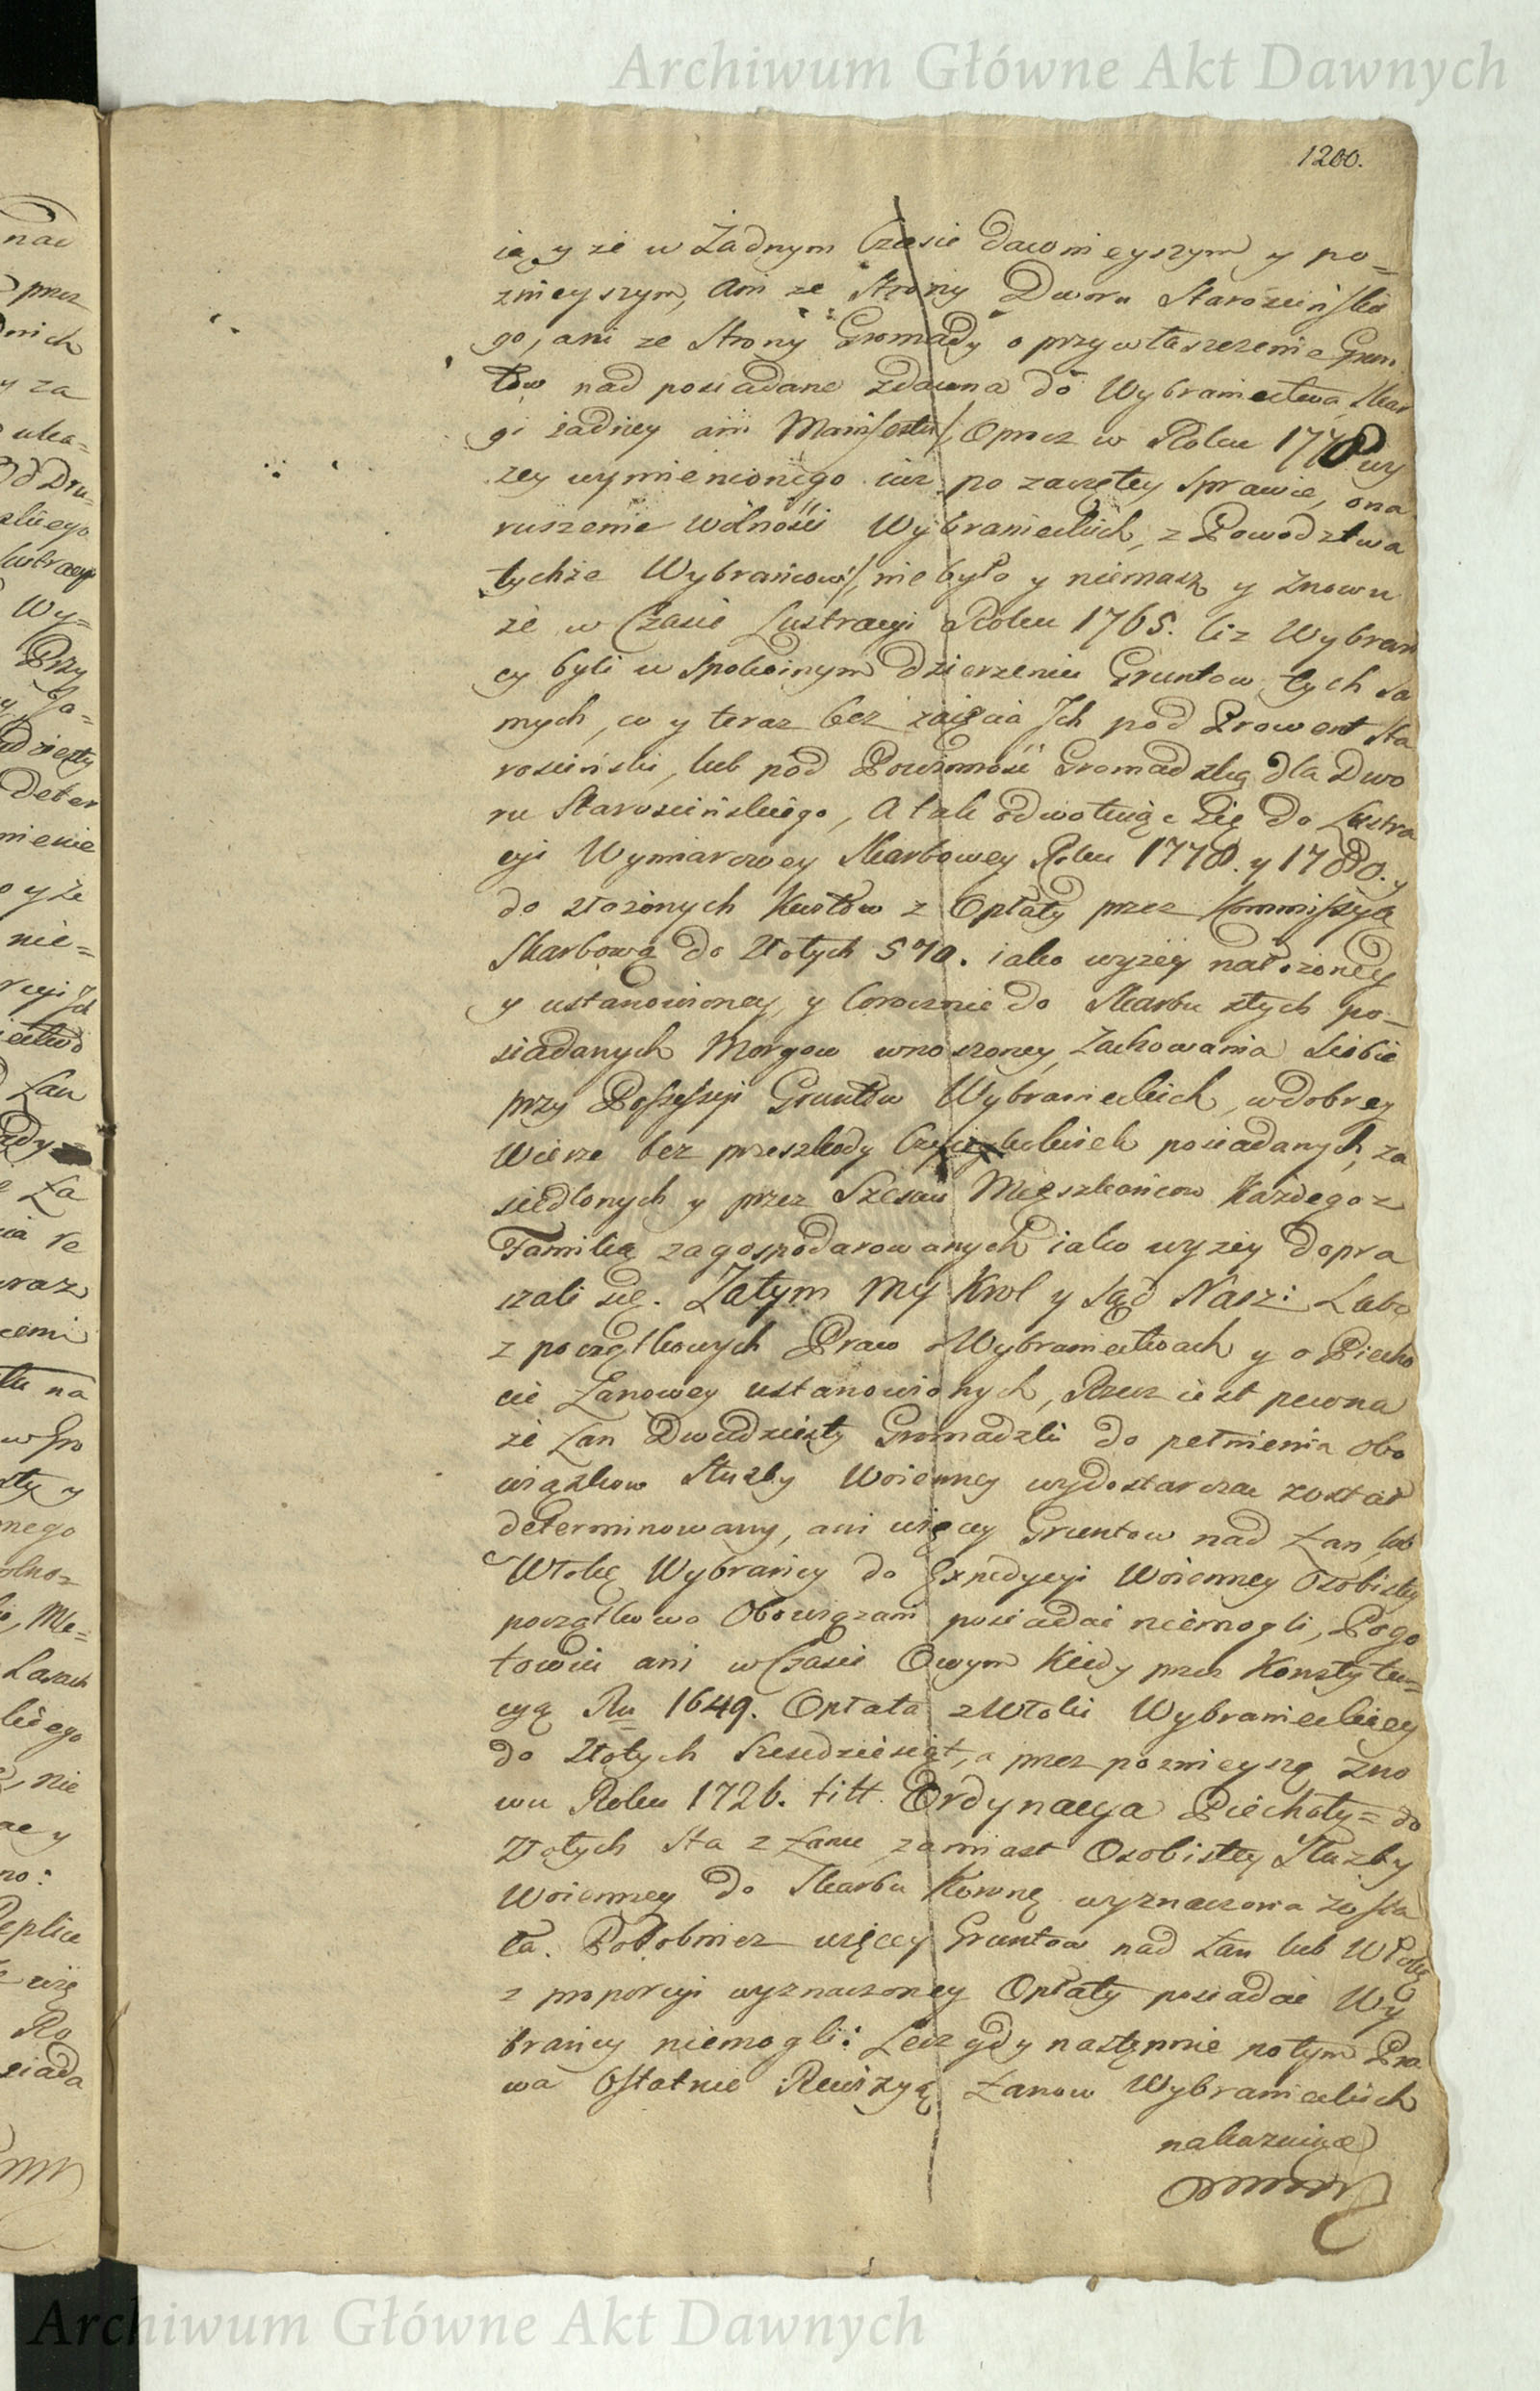 Archiwum Główne Akt Dawnych
1200.
ią y że w Żadnym Czasie dawnieyszym y po=
znieyszym, Ani ze Strony Dworu Starościńskie
go, ani ze Strony Gromady o przywłaszczenie Grun
tow nad posiadane zdawna do Wybraniectwa, Skar
gi żadney ani Manifestu, Oprocz w Roku 1778 wy
zey wymienionego iuż po zaczętey sprawie, ona
ruszenie Wolności Wybranieckich, z Powodztwa
tychże Wybrańcow, nie było y niemasz y Znowu
że w Czasie Lustracyi Roku 1765. Ciż Wybrań
cy byli w Spokoinym dzierzeniu Gruntow tych sa
mych, co y teraz bez zaięcia Ich pod Prowent Sta
rościński, lub pod Powinność Gromadzką dla Dwo
ru Starościńskiego, A tak odwołuiąc Się do Lustra
cyi Wymiarowey Skarbowey Roku 1778. y 1780. y
do złożonych Kwitow z Opłaty przez Kommissyą
Skarbową do Złotych 570. iako wyżey nałożoney
y ustanowioney, y Corocznie do Skarbu ztych po=
siadanych Morgow wnoszoney, Zachowania Siebie
przy Possessyi Gruntow Wybranieckich, w dobrey
Wierze bez przeszkody posiadanych, za
siedlonych y przez Szesciu Mięszkańcow Każdego z
Familią zagospodarowanych iako wyżey dopra
szali się. Zatym My Krol y Sąd Nasz: Lubo
z początkowych Praw o Wybraniectwach y o Piecho
cie Łanowey ustanowionych, Rzecz iest pewna
że Łan Dwudziesty Gromadzki do pełnienia Obo
wiązkow Służby Woienney wydostarczac został
determinowany, ani więcy Gruntow nad Łan lub
Włokę Wybrańcy do Expedycyi Woienney Osobistey
początkowo Obowiązani posiadać niemogli, Pogo
towiu ani w Czasie Owym Kiedy przez Konstytu=
cyą Ru 1649. Opłata z Włoki Wybranieckiey
do Złotych Szesdziesiąt, a przez poznieyszą Zno
wu Roku 1726. titt. Ordynacya Piechoty= do
Złotych Sta z Łanu zamiast Osobistey Służby
Woienney do Skarbu Koronnę wyznaczona zosta
ła. Podobniez więcey Gruntow nad Łan lub Włokę
z proporcyi wyznaczoney Opłaty posiadać Wy
brańcy niemogli: Lecz gdy następnie potym Pra
wa Ostatnie Rewizyą Łanow Wybranieckich
nakazuiące
Archiwum Główne Akt Dawnych